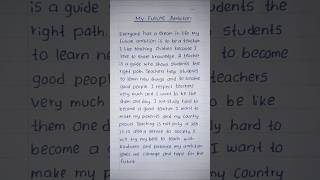 My Future Ambition
Everyone has a dream in life my
future ambition is to be a teacher
I like teaching children because I
love to share knowledge. A teacher
is a guide who shows students the
right path. Teachers help students
to learn new things and to become
good people. I respect teachers
very much and I want to be like
them one day. I will study hard to
become a good teacher. I want to
make my parents and my country
proud. Teaching is not only a job
it is also a service to society. I
will try my best to teach with
kindness and patience my ambition
gives me courage and hope for the
future.
is a guide
students the
right path.
students
to learn new
to become
good people
teachers
very much
to be like
them one da
hard to
become a
want to
my country